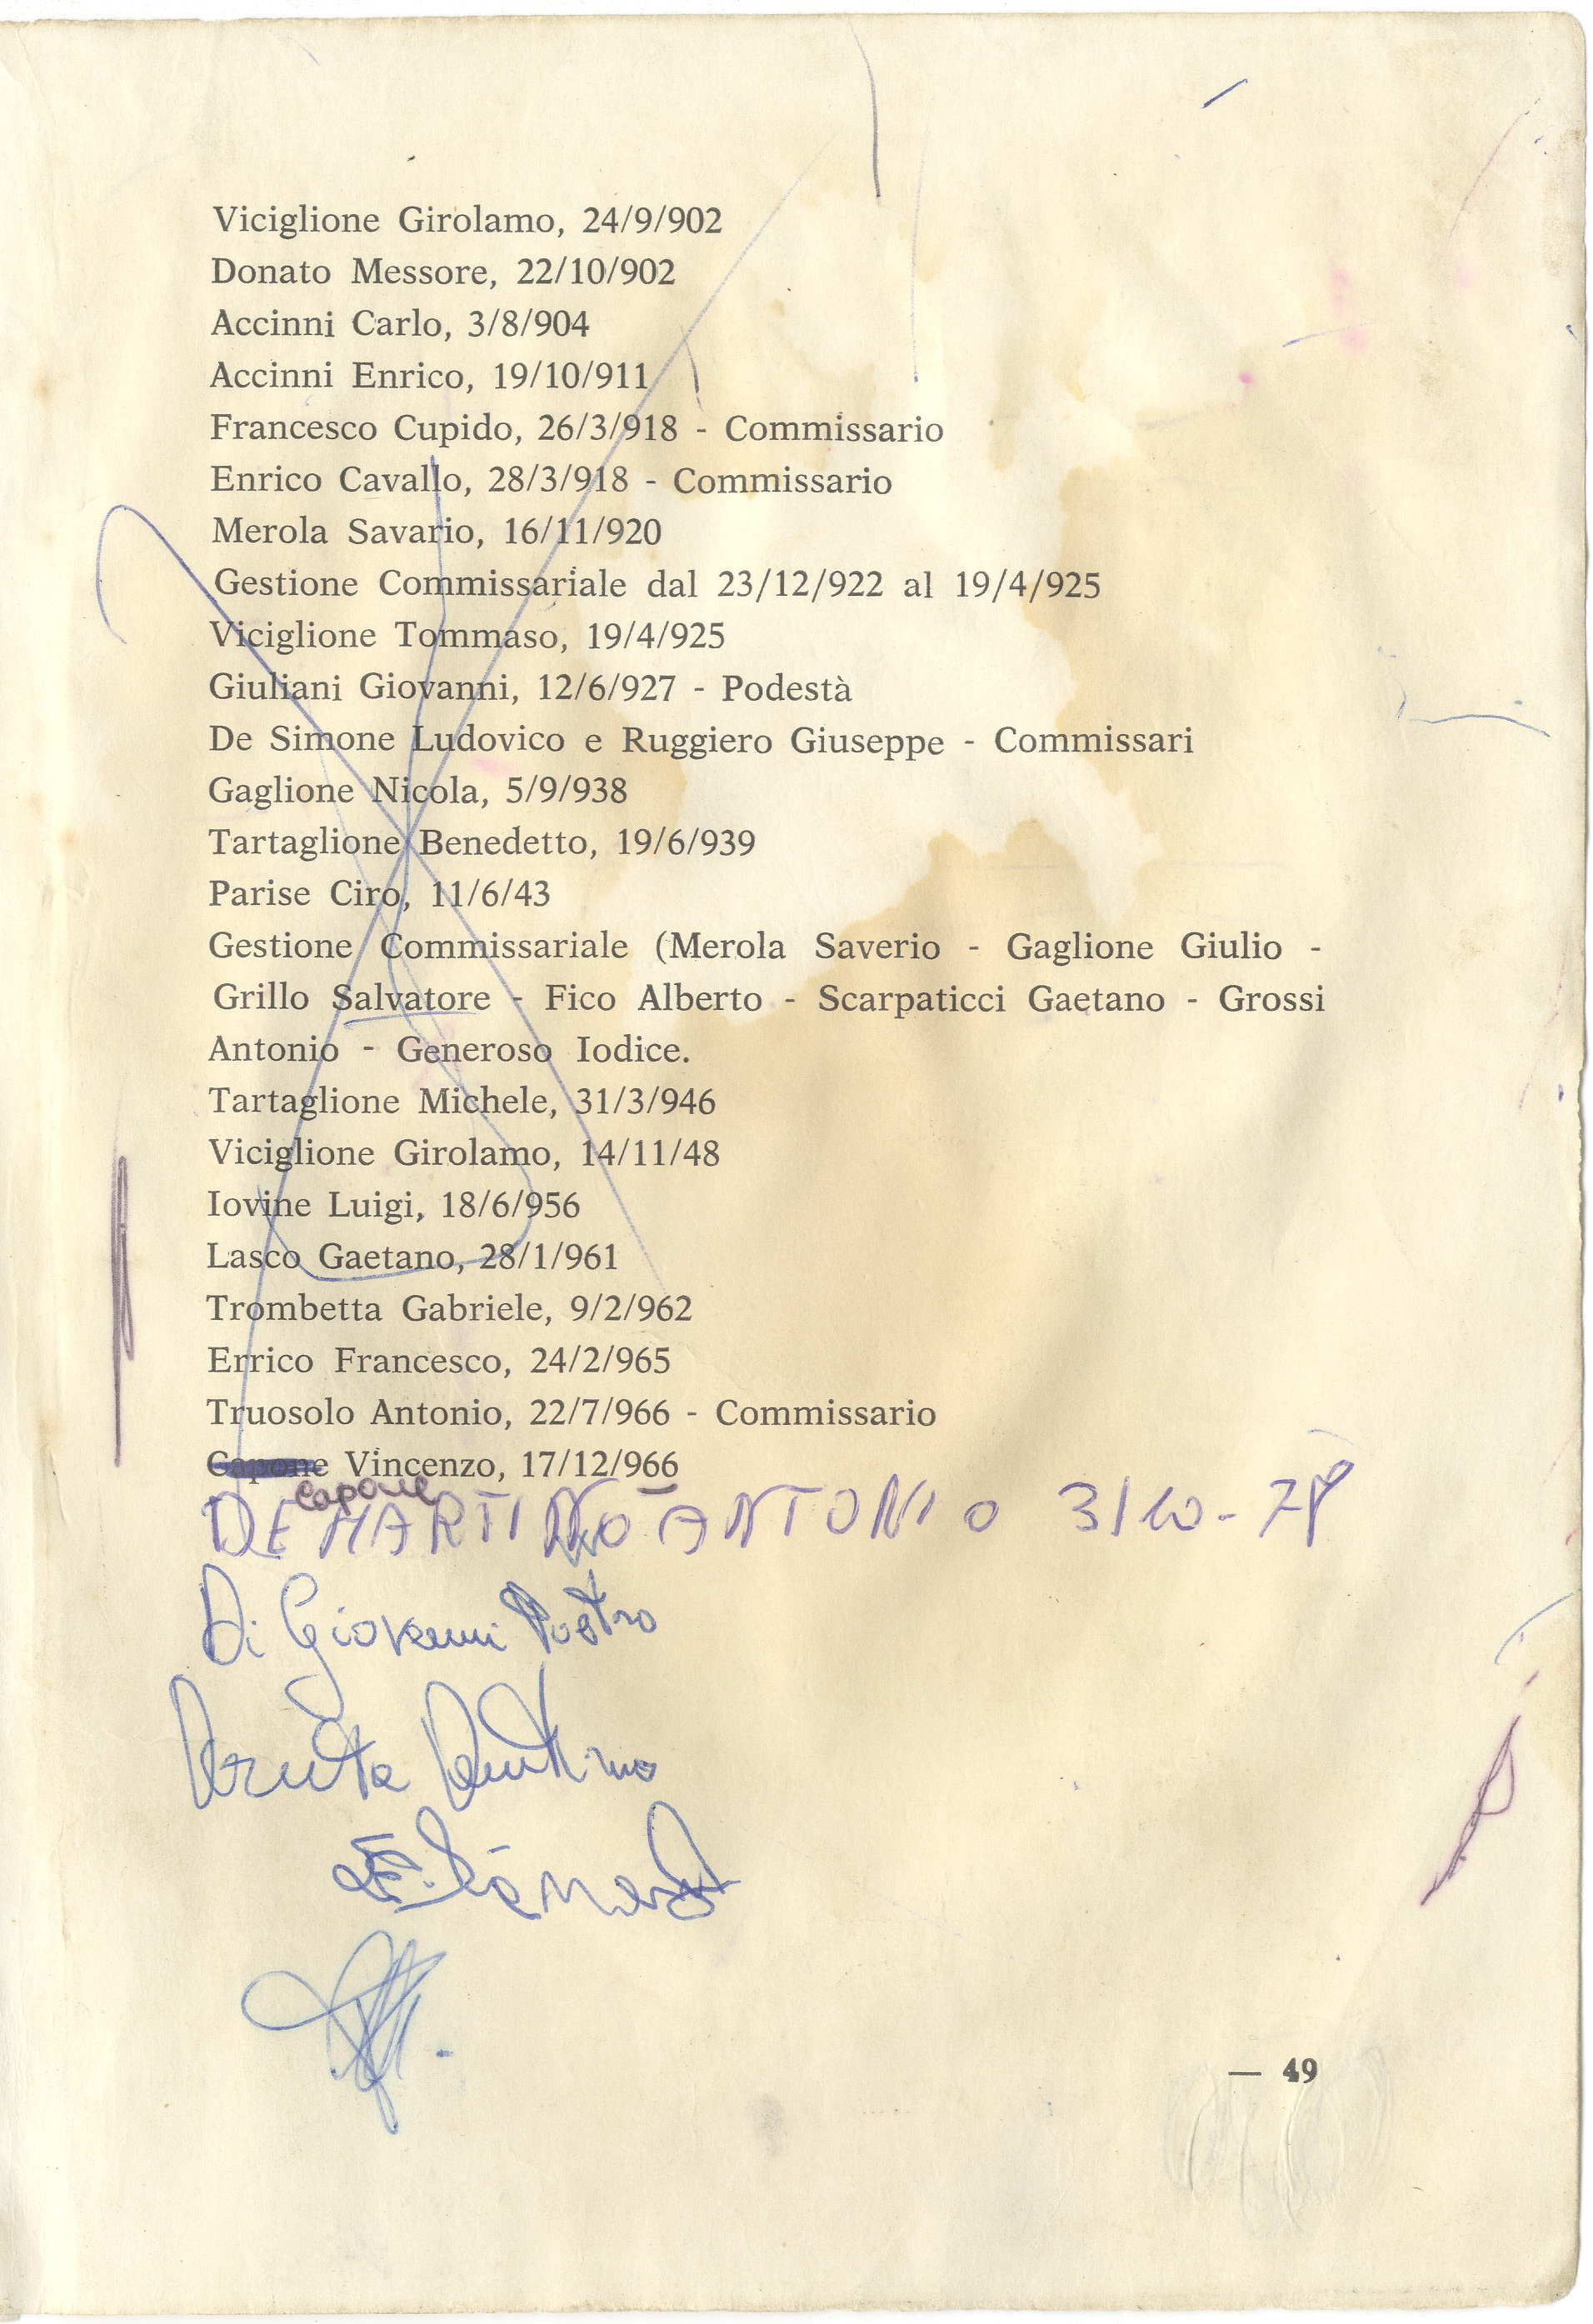 Viciglione Girolamo, 24/9/902
Donato Messore, 22/10/902
Accinni Carlo, 3/8/904
Accinni Enrico, 19/10/911
Francesco Cupido, 26/3/918 - Commissario
Enrico Cavallo, 28/3/918 - Commissario
Merola Savario, 16/11/920
Gestione Commissariale dal 23/12/922 al 19/4/925
Viciglione Tommaso, 19/4/925
Giuliani Giovanni, 12/6/927 - Podestà
De Simone Ludovico e Ruggiero Giuseppe - Commissari
Gaglione Nicola, 5/9/938
Tartaglione Benedetto, 19/6/939
Parise Ciro, 11/6/43
Gestione Commissariale (Merola Saverio - Gaglione Giulio -
Grillo Salvatore - Fico Alberto - Scarpaticci Gaetano - Grossi
Antonio - Generoso Iodice.
Tartaglione Michele, 31/3/946
Viciglione Girolamo, 14/11/48
Iovine Luigi, 18/6/956
Lasco Gaetano, 28/1/961
Trombetta Gabriele, 9/2/962
Errico Francesco, 24/2/965
Truosolo Antonio, 22/7/966 - Commissario
Capone Vincenzo, 17/12/966
Capone
DE MARTINO ANTONIO 3/10-78
Di Giovanni
— 49